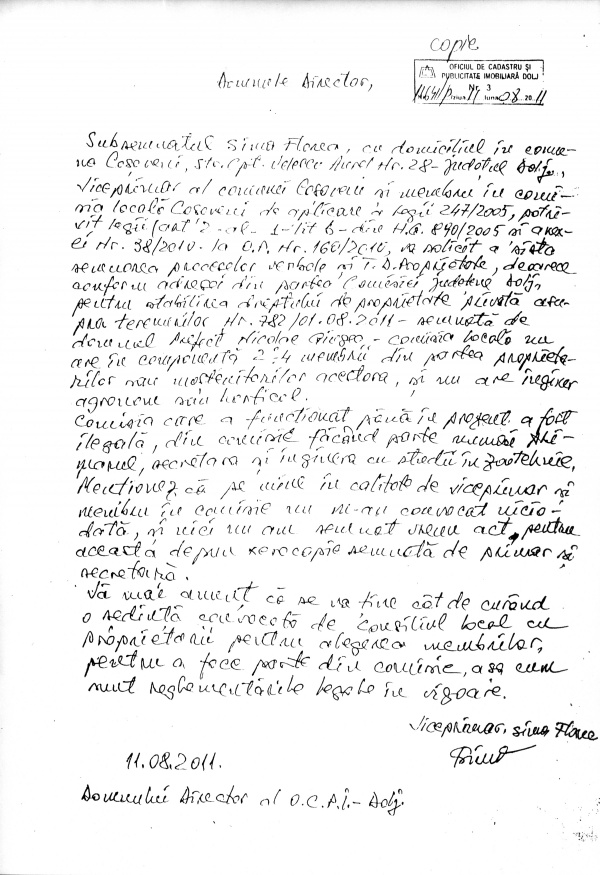 copie
OFICIUL DE CADASTRU ȘI
PUBLICITATE IMOBILIARĂ DOLJ
Nr. 3
ziua 11 luna 08 20 11
Domnule Director,
Subsemnatul Sima Florea, cu domiciliul în comu-
na Coșoveni, str. Cpt. Aurel Nr. 28 - județul Dolj,
viceprimar al comunei Coșoveni și membru în comi-
sia locală Coșoveni de aplicare a legii 247/2005, potri-
vit legii (art 2 - al - 1 - lit b - din H.G. 890/2005 și anex-
ei Nr. 38/2010 la O.P. Nr. 160/2010, vă solicit a sista
semnarea proceselor verbale și T.D. Proprietate, deoarece
conform adresei din partea Comisiei județene Dolj,
pentru stabilirea dreptului de proprietate privată asu-
pra terenurilor Nr. 782/01.08.2011 - semnată de
domnul Prefect Nicolae - comisia locală nu
are în componență 2-4 membrii din partea proprieta-
rilor sau moștenitorilor acestora, și nu are inginer
agronom sau horticol.
Comisia care a funcționat până în prezent a fost
ilegală, din comisie făcând parte numai pri-
marul, secretara și inginera cu studii în zootehnie,
Menționez că pe mine în calitate de viceprimar și
membru în comisie nu m-au convocat nicio-
dată, și nici nu am semnat vreun act, pentru
aceasta depun xerocopie semnată de primar și
secretară.
Vă mai anunț că se va ține cât de curând
o ședință convocată de Consiliul local cu
proprietarii pentru alegerea membrilor,
pentru a face parte din comisie, așa cum
sunt reglementările legale în vigoare.
Viceprimar, Sima Florea
11.08.2011.
Domnului Director al O.C.P.I. - Dolj.